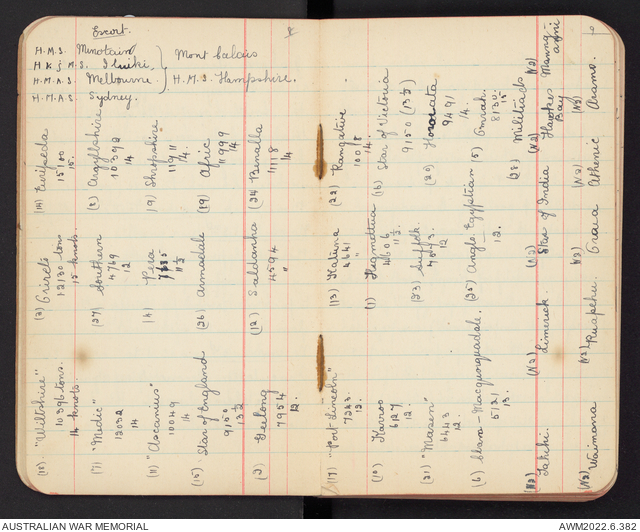 Escort.
H.M.S. Minotaur
H.M.A.S. Melbourne
H.M.A.S. Sydney.
H.M.S. Hampshire.
(18) "Wiltshire"
10396 tons.
14 knots.
(3) Orvieto
12130 tons
15 knots.
(14) Euripedes
15100
15.
(7) "Medic"
12032
14
(27) Southern
4769
12
(2) Argyllshire
10392
14
(11) "Ascanius"
10049
14
(4) Pera
11½
(9) Shropshire
11911
14.
(15) Star of England
9150
13½
(26) Armadale
(19) Afric
11999
14
(2) Geelong
7954
12.
(12) Saldanha
4594
"
(24) Benalla
11118
14
(17) "Port Lincoln"
7243
12.
(13) Katuna
4641
"
(22) Rangatira
10018
14.
(10) Karroo
6127
12.
(1) Hymettus
4606
11½
(16) Star of Victoria
9150 (13½)
(21) "Marere"
6443
12.
(23) Suffolk
7573
12
(20) Hororata
9491
14.
(6) Clan-Macquorquodale.
5121
13.
(25) Anglo Egyptian
12.
(5) Omrah.
8130
15
(23) Militiades
(NZ) Tahiti.
(NZ) Limerick.
(NZ) Star of India
(NZ) Hawkes
Bay
(NZ) Maung-
anui
(NZ) Waimana
(NZ) Ruapehu.
(NZ) Orari
(NZ) Athenic
(NZ) Arawa.
AUSTRALIAN WAR MEMORIAL
AWM2022.6.382